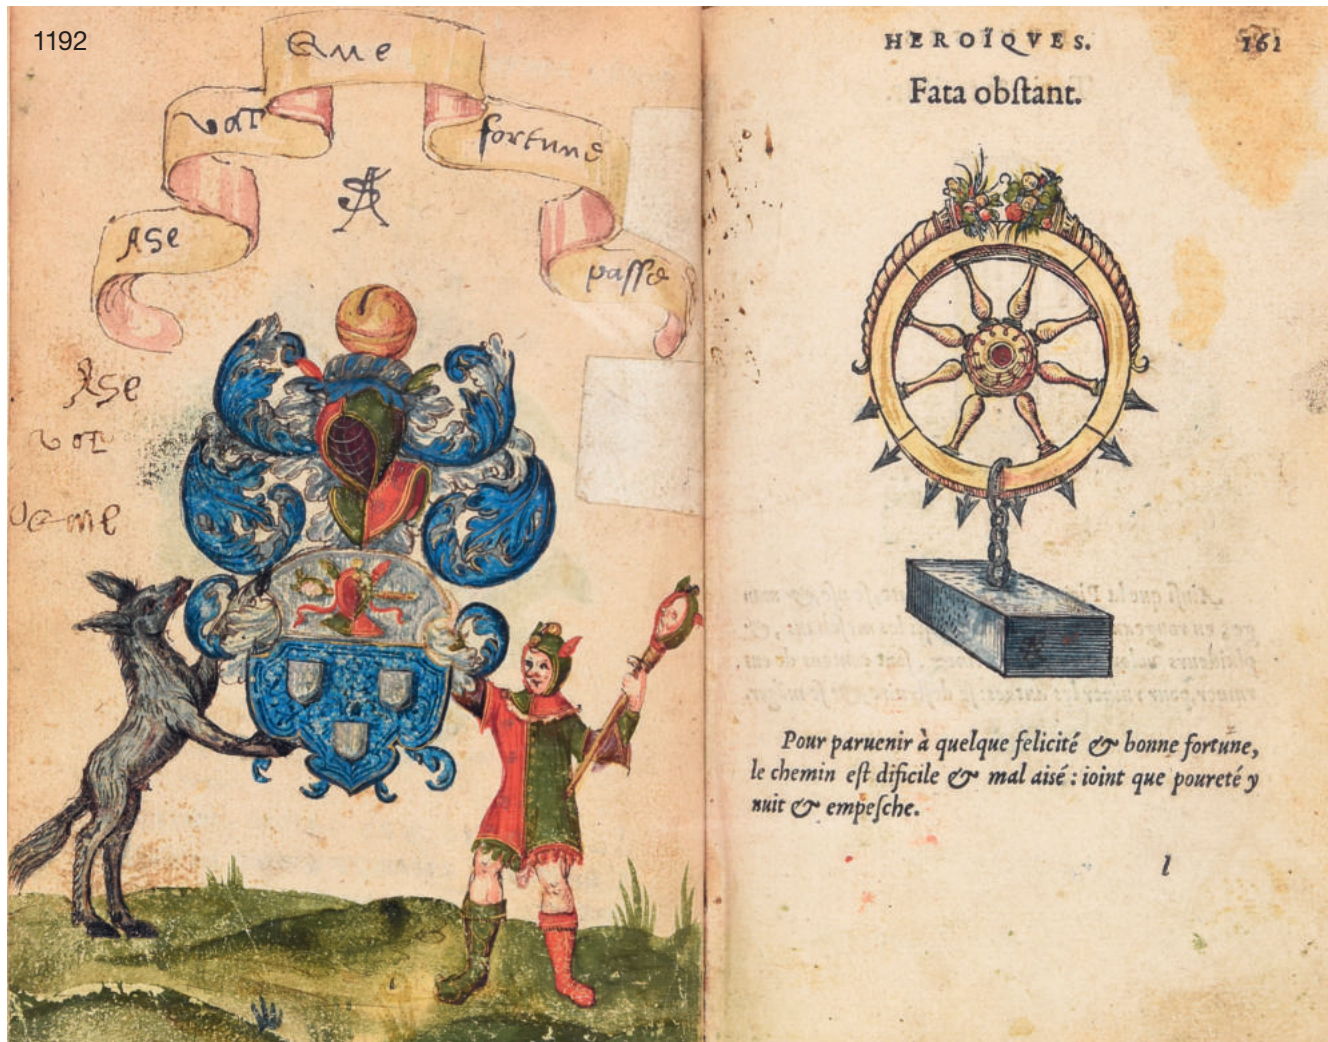 1192
Que
vat
fortune
Ase
passe
Ase
vat
HEROÏQVES.
161
Fata obſtant.
Pour paruenir à quelque felicité & bonne fortune,
le chemin eſt dificile & mal aiſé : ioint que poureté y
nuit & empeſche.
l